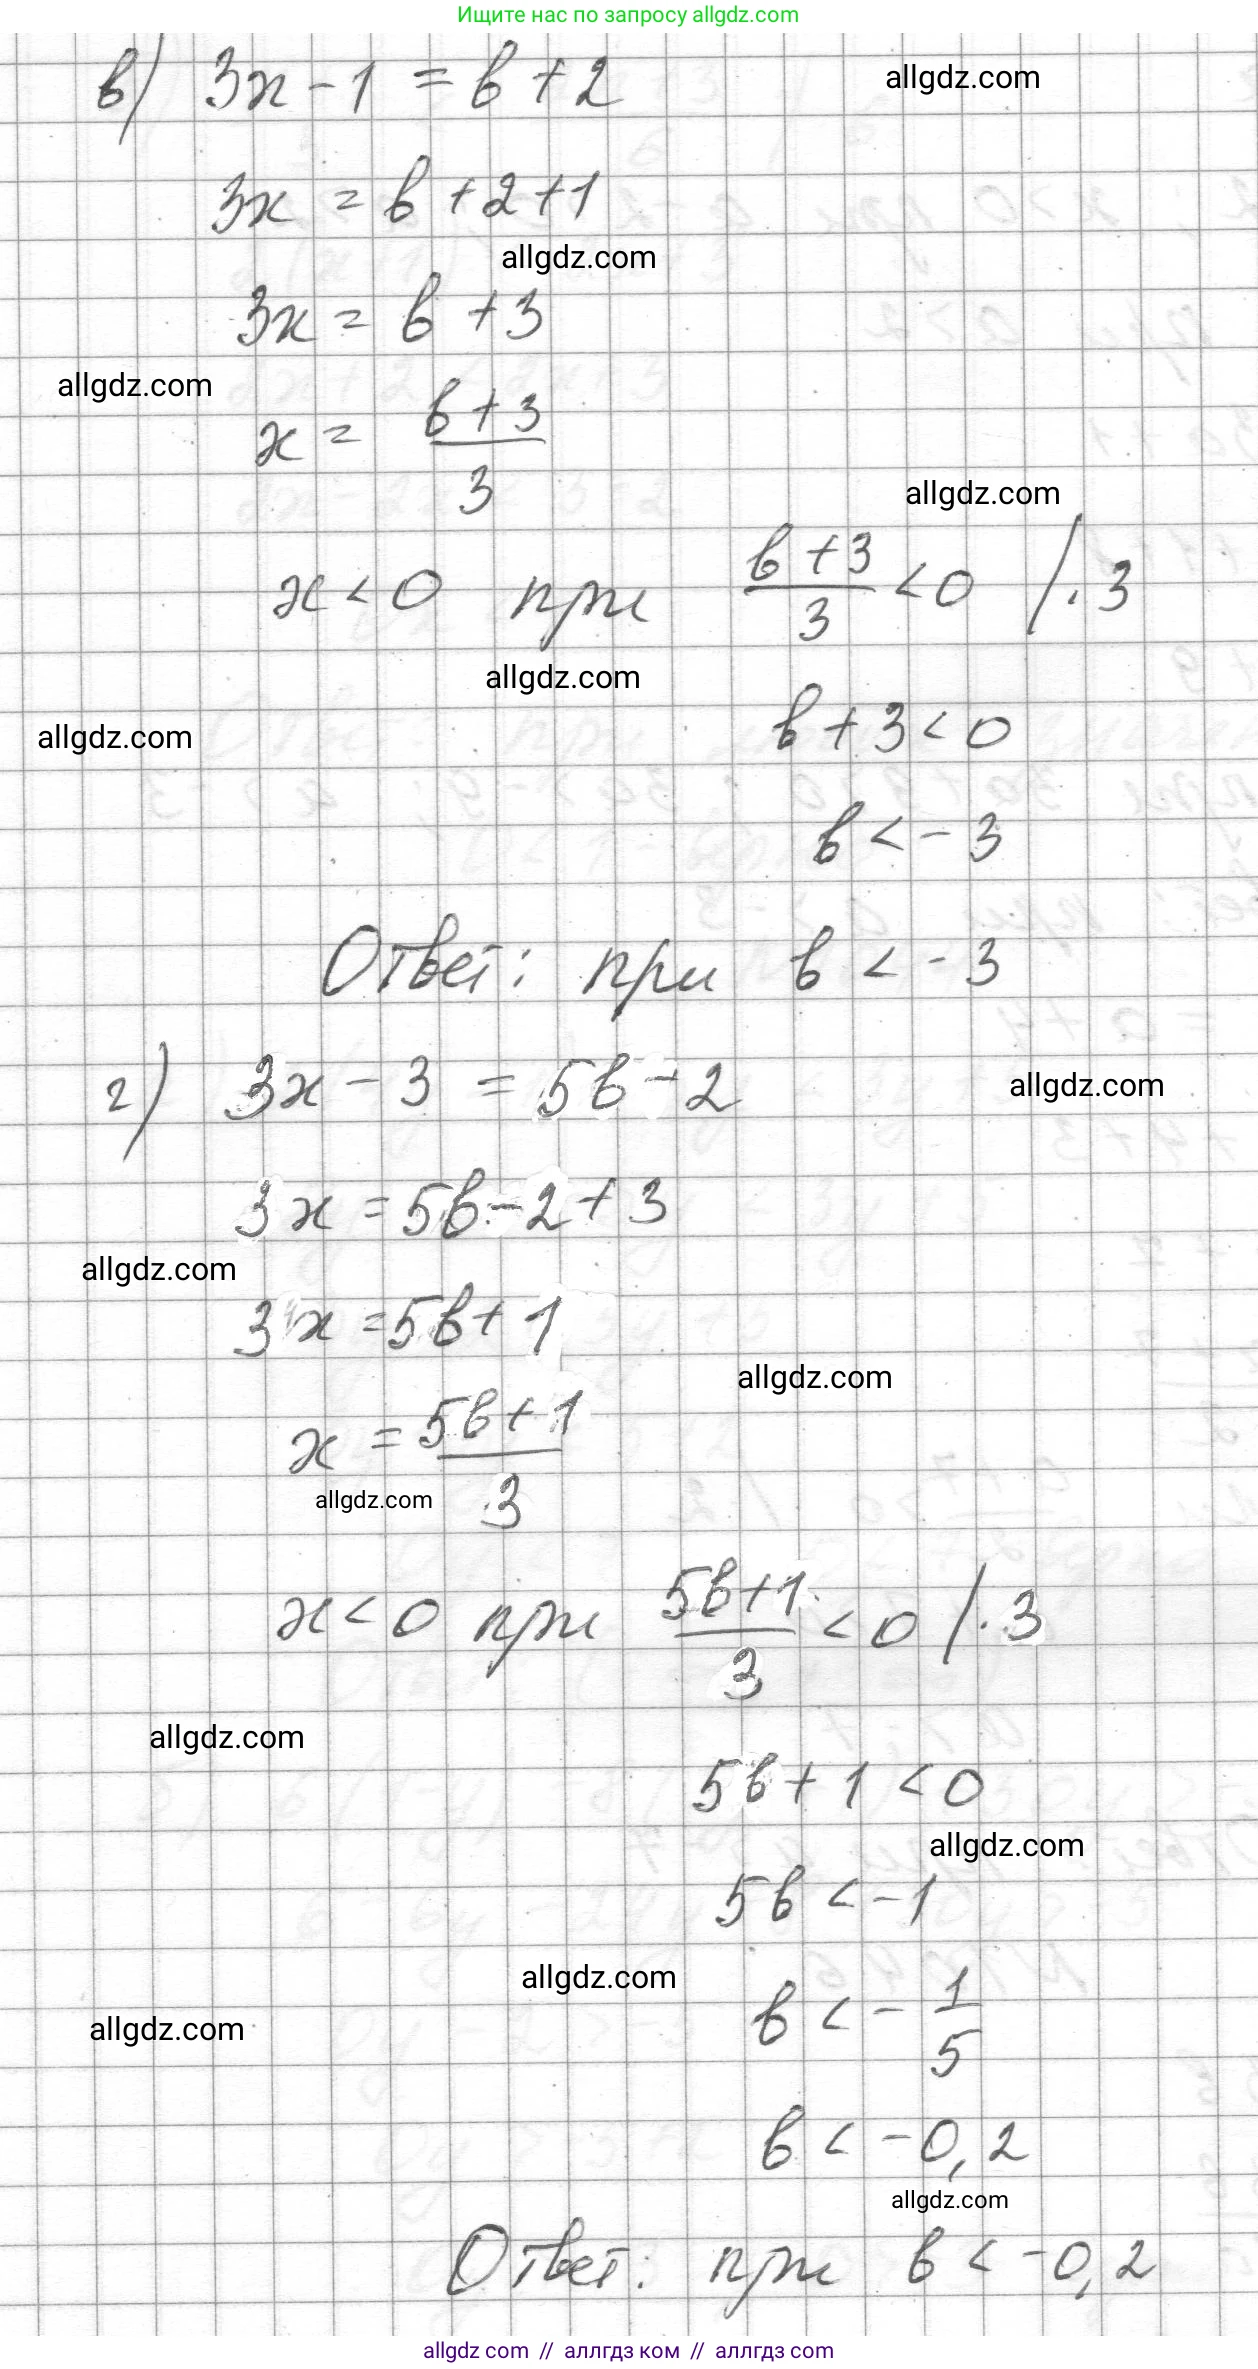 Ищите нас по запросу allgdz.com
в) 3x - 1 = в + 2
allgdz.com
3x = в + 2 + 1
allgdz.com
3x = в + 3
allgdz.com
x = (в + 3)/3
allgdz.com
x < 0 при (в + 3)/3 < 0 / · 3
allgdz.com
в + 3 < 0
allgdz.com
в < - 3
Ответ: при в < - 3
г) 3x - 3 = 5в - 2
allgdz.com
3x = 5в - 2 + 3
allgdz.com
3x = 5в + 1
allgdz.com
x = (5в + 1)/3
allgdz.com
x < 0 при (5в + 1)/3 < 0 / · 3
allgdz.com
5в + 1 < 0
allgdz.com
5в < - 1
allgdz.com
в < - 1/5
allgdz.com
в < - 0,2
allgdz.com
Ответ: при в < - 0,2
allgdz com // аллгдз ком // аллгдз com